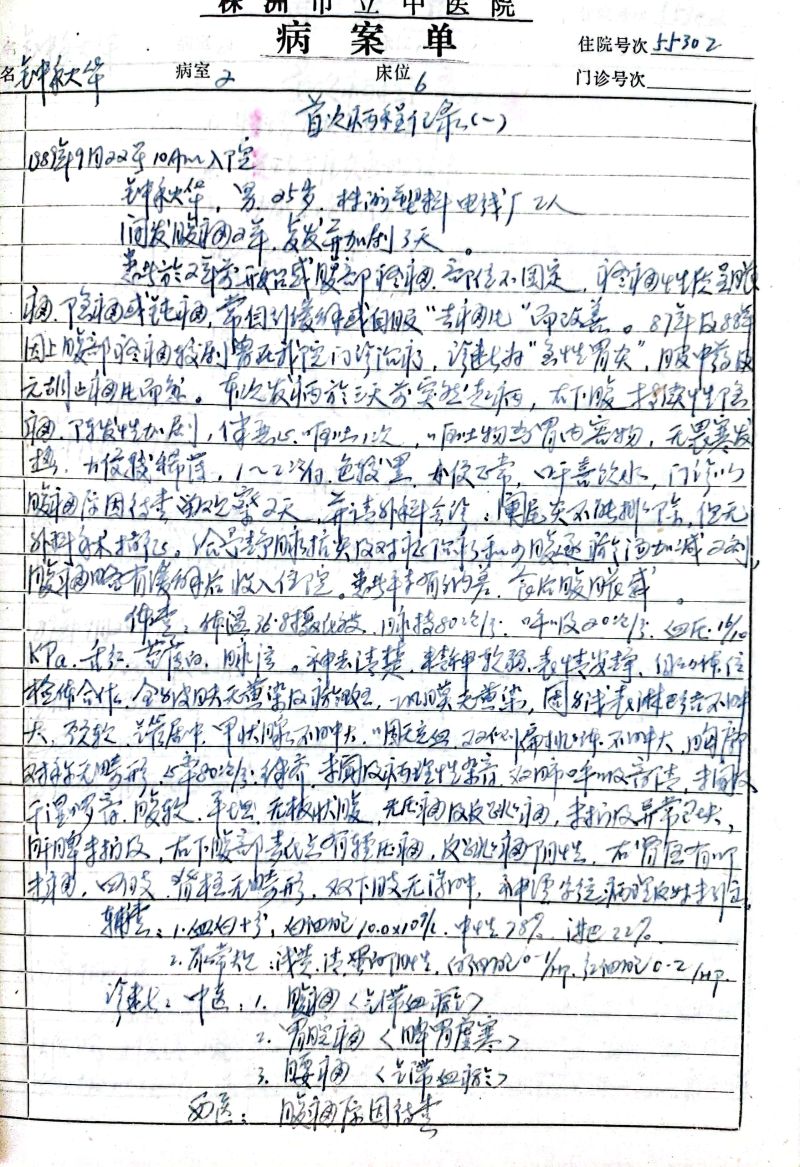 株洲市立中医院
病案单
住院号次 55302
名 钟秋华 病室 2 床位 6 门诊号次
首次病程记录(一)
1989年9月22号10Am入院
钟秋华,男,25岁,株洲塑料电线厂工人
间发腹痛2年,复发并加剧3天。
患者於2年前开始感腹部疼痛,部位不固定,疼痛性质呈胀
痛、隐痛或钝痛,常自行缓解或自服“去痛片”而改善。87年及88年
因上腹部疼痛较剧曾在我院门诊治疗,诊断为“急性胃炎”,服中药及
元胡止痛片而愈。本次发病於三天前突然起病,右下腹持续性隐
痛,阵发性加剧,伴恶心呕吐1次,呕吐物为胃内容物,无畏寒发
热,大便残稀,1~2次/日,色较黑,小便正常,口干喜饮水,门诊以
腹痛原因待查留观察2天,并请外科会诊:阑尾炎不能排除,但无
外科手术指征。给予静脉抗炎及对症治疗和少腹逐瘀汤加减2剂,
腹痛略有缓解后收入住院。患者平素有纳差、食后腹胀感。
体查:体温36.8摄氏度,脉搏80次/分,呼吸20次/分,血压16/10
KPa,舌红,苔薄白,脉弦。神志清楚,精神软弱,表情安静,自动体位
检体合作,全身皮肤无黄染及瘀斑,巩膜无黄染,周身浅表淋巴结不肿
大,颈软,气管居中,甲状腺不肿大,咽无充血,双侧扁桃体不肿大,胸廓
对称无畸形,心率80次/分,律齐,未闻及病理性杂音,双肺呼吸音清,未闻及
干湿啰音,腹软,平坦,无板状腹,无压痛及反跳痛,未扪及异常包块,
肝脾未扪及,右下腹部麦氏点有轻压痛,反跳痛阴性,右肾区有叩
击痛,四肢、脊柱无畸形,双下肢无浮肿,神经系统病理反射未引出。
辅查:1.血常规,白细胞10.0x10⁹/L 中性78% 淋巴22%
2.尿常规:浅黄,清,蛋白阴性,白细胞0-1/HP,红细胞0-2/HP
诊断:中医:1. 腹痛<气滞血瘀>
2. 胃脘痛<脾胃虚寒>
3. 腰痛<气滞血瘀>
西医:腹痛原因待查